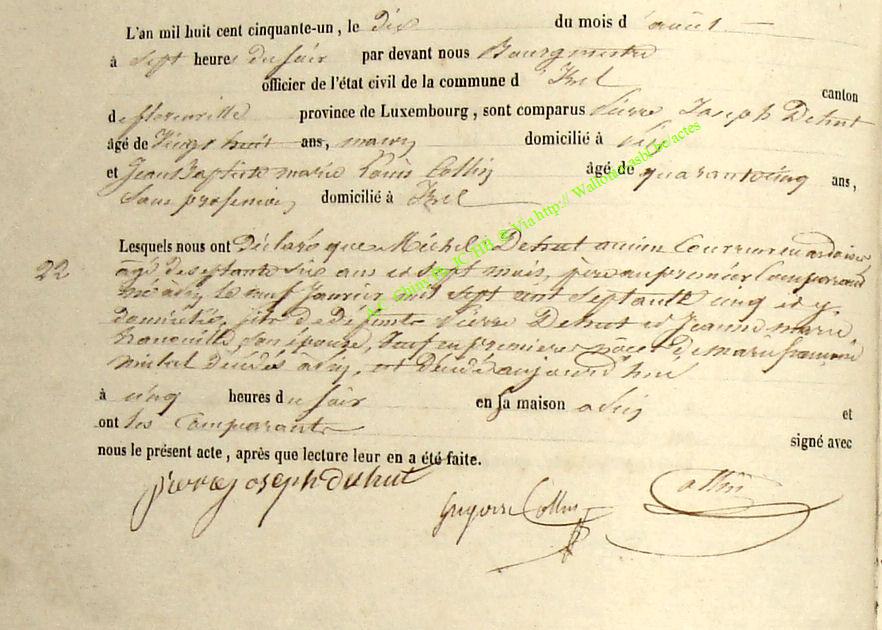 L'an mil huit cent cinquante-un, le dix du mois d'août
à sept heures du soir par devant nous Bourgmestre
officier de l'état civil de la commune d' Izel
canton
de florenville province de Luxembourg, sont comparus Pierre Joseph Dehut
âgé de vingt huit ans, domicilié à
et Jean Baptiste marie Louis Collin âgé de quarante cinq ans,
Sans profession domicilié à Izel
Lesquels nous ont Déclaré que Michel Dehut ancien Couvreur en ardoises
22
âgé de septante six ans et sept mois, père au premier Comparant
né à le neuf Janvier mil sept cent septante cinq et y
domicilié, fils de Défunts Pierre Dehut et Jeanne marie
son épouse, veuf en premières nôces de marie françoise
michel décédée à est Décédé aujourd'hui
à cinq heures du soir en sa maison et
ont les Comparants signé avec
nous le présent acte, après que lecture leur en a été faite.
pierre joseph dehut
Collin
Grégoire Collin
A.C. Chiny JC HH © Via http:// Wallonia asbl.be/actes